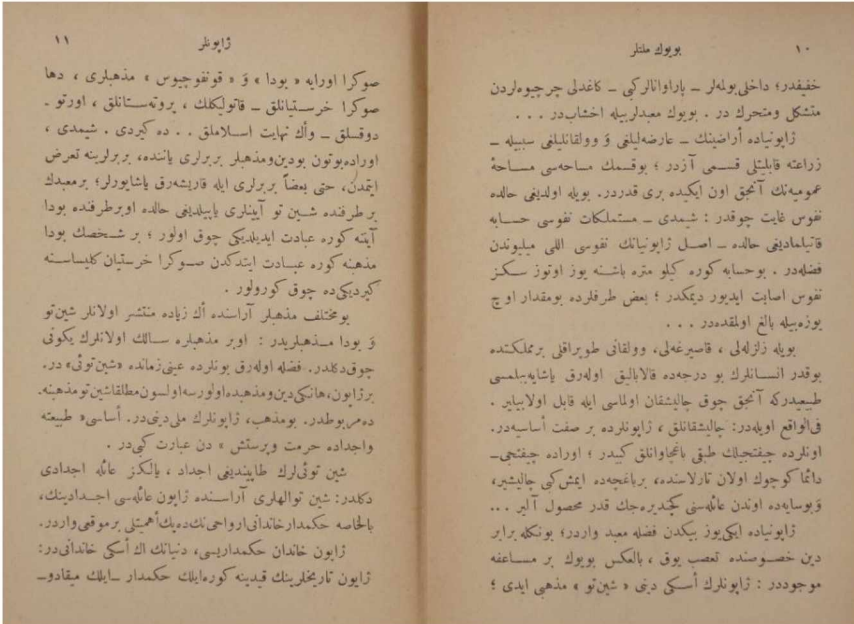 ١٠
بويوك ملتلر
خفيفدر؛ داخلى بولمه‌لر ــ پاراوانالر كبى ــ كاغدلى چرچيوه‌لردن
متشكل ومتحرك در . بويوك معبدلر بيله اخشاب در . . .
ژاپونياده أراضينك ــ عارضه‌ليلغى وَ وولقانليلغى سببيله ــ
زراعته قابليتلى قسمى آزدر ؛ بو قسمك مساحه‌سى مساحۀ
عموميه‌نك آنجق اون ايكيده برى قدردر. بويله اولديغى حالده
نفوس غايت چوقدر : شيمدى ــ مستملكات نفوسى حسابه
قاتيلماديغى حالده ــ اصل ژاپونيانك نفوسى اللى ميليوندن
فضله‌در . بو حسابه كوره كيلو متره باشنه يوز اوتوز سكز
نفوس اصابت ايديور ديمكدر ؛ بعض طرفلرده بو مقدار اوچ
يوزه بيله بالغ اولمقده‌در . . .
بويله زلزله‌لى ، قاصيرغه‌لى، وولقانى طوپراقلى بر مملكتده
بوقدر انسانلرك بو درجه‌ده قالابالق اوله‌رق ياشايه‌بيلمسى
طبيعيدركه آنجق چوق چاليشقان اولماسى ايله قابل اولابيلير .
فى‌الواقع اويله‌در: چاليشقانلق ، ژاپونلرده بر صفت أساسيه‌در.
اونلرده چيفتجيلك طبقى باغچاوانلق كبيدر ؛ اوراده چيفتجى ــ
دائما كوچوك اولان تارلاسنده، بر باغچه‌ده ايمش كبى چاليشير،
وَ بوسايه‌ده اوندن عائله‌سنى كچنديره‌جك قدر محصول آلير ...
ژاپونياده ايكى يوز بيكدن فضله معبد واردر؛ بونكله برابر
دين خصوصنده تعصب يوق ، بالعكس بويوك بر مساعفه
موجوددر : ژاپونلرك أسكى دينى « شين‌تو » مذهبى ايدى ؛
ژاپونلر
١١
صوكرا اورايه « بودا » وَ « قونفوچيوس » مذهبلرى ، دها
صوكرا خرستيانلق ــ قاتوليكلك ، پروته‌ستانلق ، اورتو ـ
دوقسلق ــ وأك نهايت اسلاملق . . ده كيردى . شيمدى ،
اوراده بوتون بو دين ومذهبلر بربرلرى ياننده، بربرلرينه تعرض
ايتمدن، حتى بعضاً بربرلرى ايله قاريشه‌رق ياشايورلر؛ بر معبدك
بر طرفنده شين تو آيينلرى ياپيلديغى حالده اوبر طرفنده بودا
آيننه كوره عبادت ايديلديكى چوق اولور ؛ بر شخصك بودا
مذهبنه كوره عبادت ايتدكدن صوكرا خرستيان كليساسنه
كيرديكى ده چوق كورولور .
بو مختلف مذهبلر آراسنده أك زياده منتشر اولانلر شين‌تو
وَ بودا مذهبلريدر : اوبر مذهبلره سالك اولانلرك يكونى
چوق دكلدر. فضله اوله‌رق بونلرده عينى زمانده «شين‌توئى» در.
بر ژاپون، هانكى دين ومذهبده اولورسه اولسون مطلقا شين‌تو مذهبنه
ده مربوطدر. بو مذهب، ژاپونلرك ملى دينى‌در. أساسى « طبيعته
واجداده حرمت وپرستش » دن عبارت كبى‌در .
شين توئى‌لرك طاپينديغى اجداد ، يالكز عائله اجدادى
دكلدر: شين توالهلرى آراسنده ژاپون عائله‌سى اجدادينك،
بالخاصه حكمدار خاندانى ارواحى‌نك ده پك أهميتلى بر موقعى واردر.
ژاپون خاندان حكمداريسى، دنيانك اك أسكى خاندانى‌در:
ژاپون تاريخلرينك قيدينه كوره ايلك حكمدار ــ ايلك ميقادو ــ